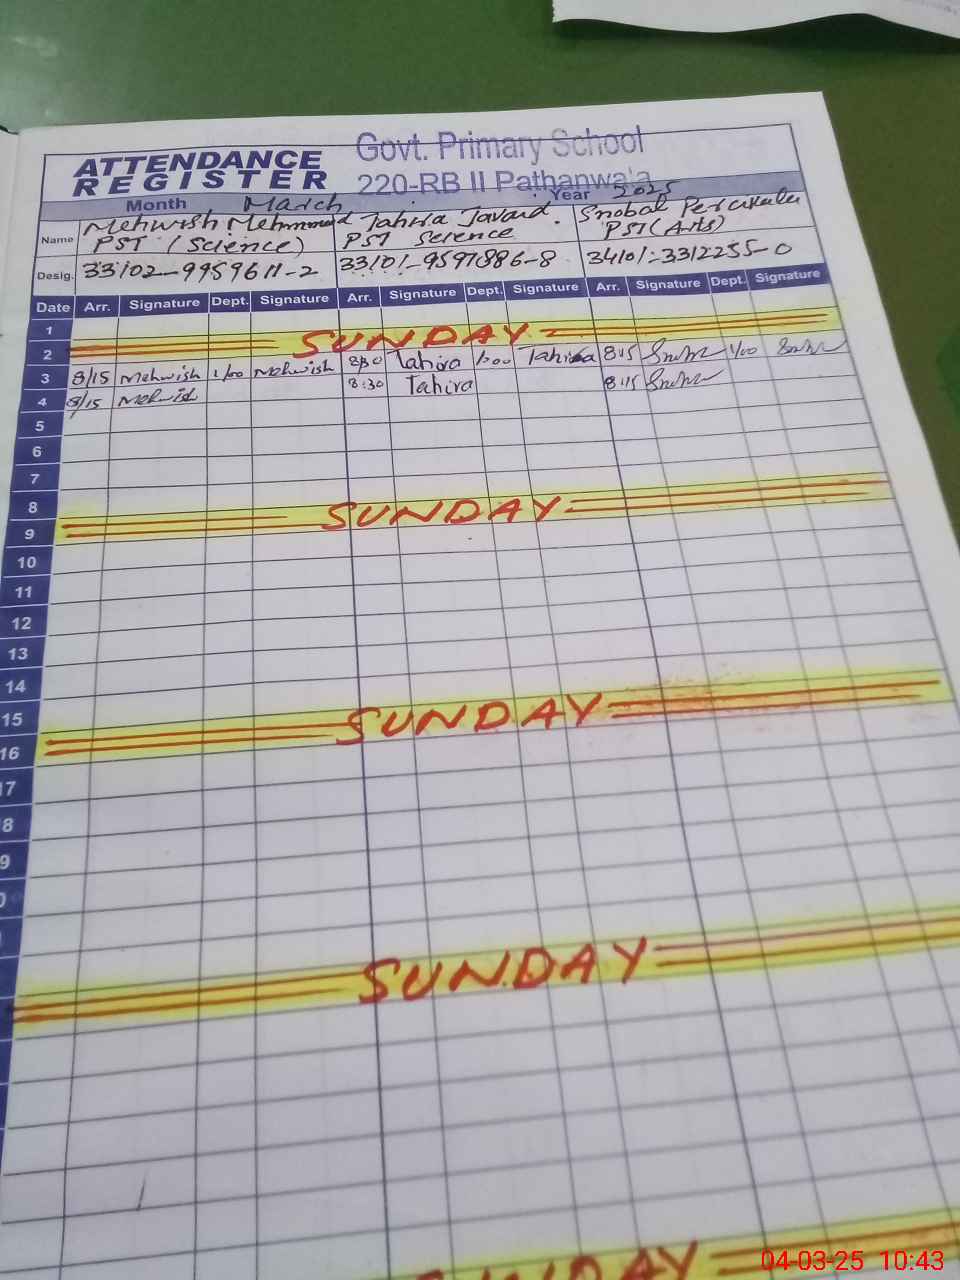 ATTENDANCE REGISTER
Govt. Primary School
220-RB II Pathanwala
Month March Year 2025
Name Mehwish Mehmood Tahira Javaid. Snobal
PST (Science) PST Science PST (Arts)
Desig. 33102-9959611-2 33101-9597886-8 34101-3312255-0
Date Arr. Signature Dept. Signature Arr. Signature Dept. Signature Arr. Signature Dept. Signature
1
2 SUNDAY
3 8/15 Mehwish 1/00 Mehwish 8:30 Tahira 1:00 Tahira 8:15 1/00
4 8/15 Mehwish 8:30 Tahira 8:15
5
6
7
8
9 SUNDAY
10
11
12
13
14
15
16 SUNDAY
17
8
9
0
SUNDAY
SUNDAY
04-03-25 10:43